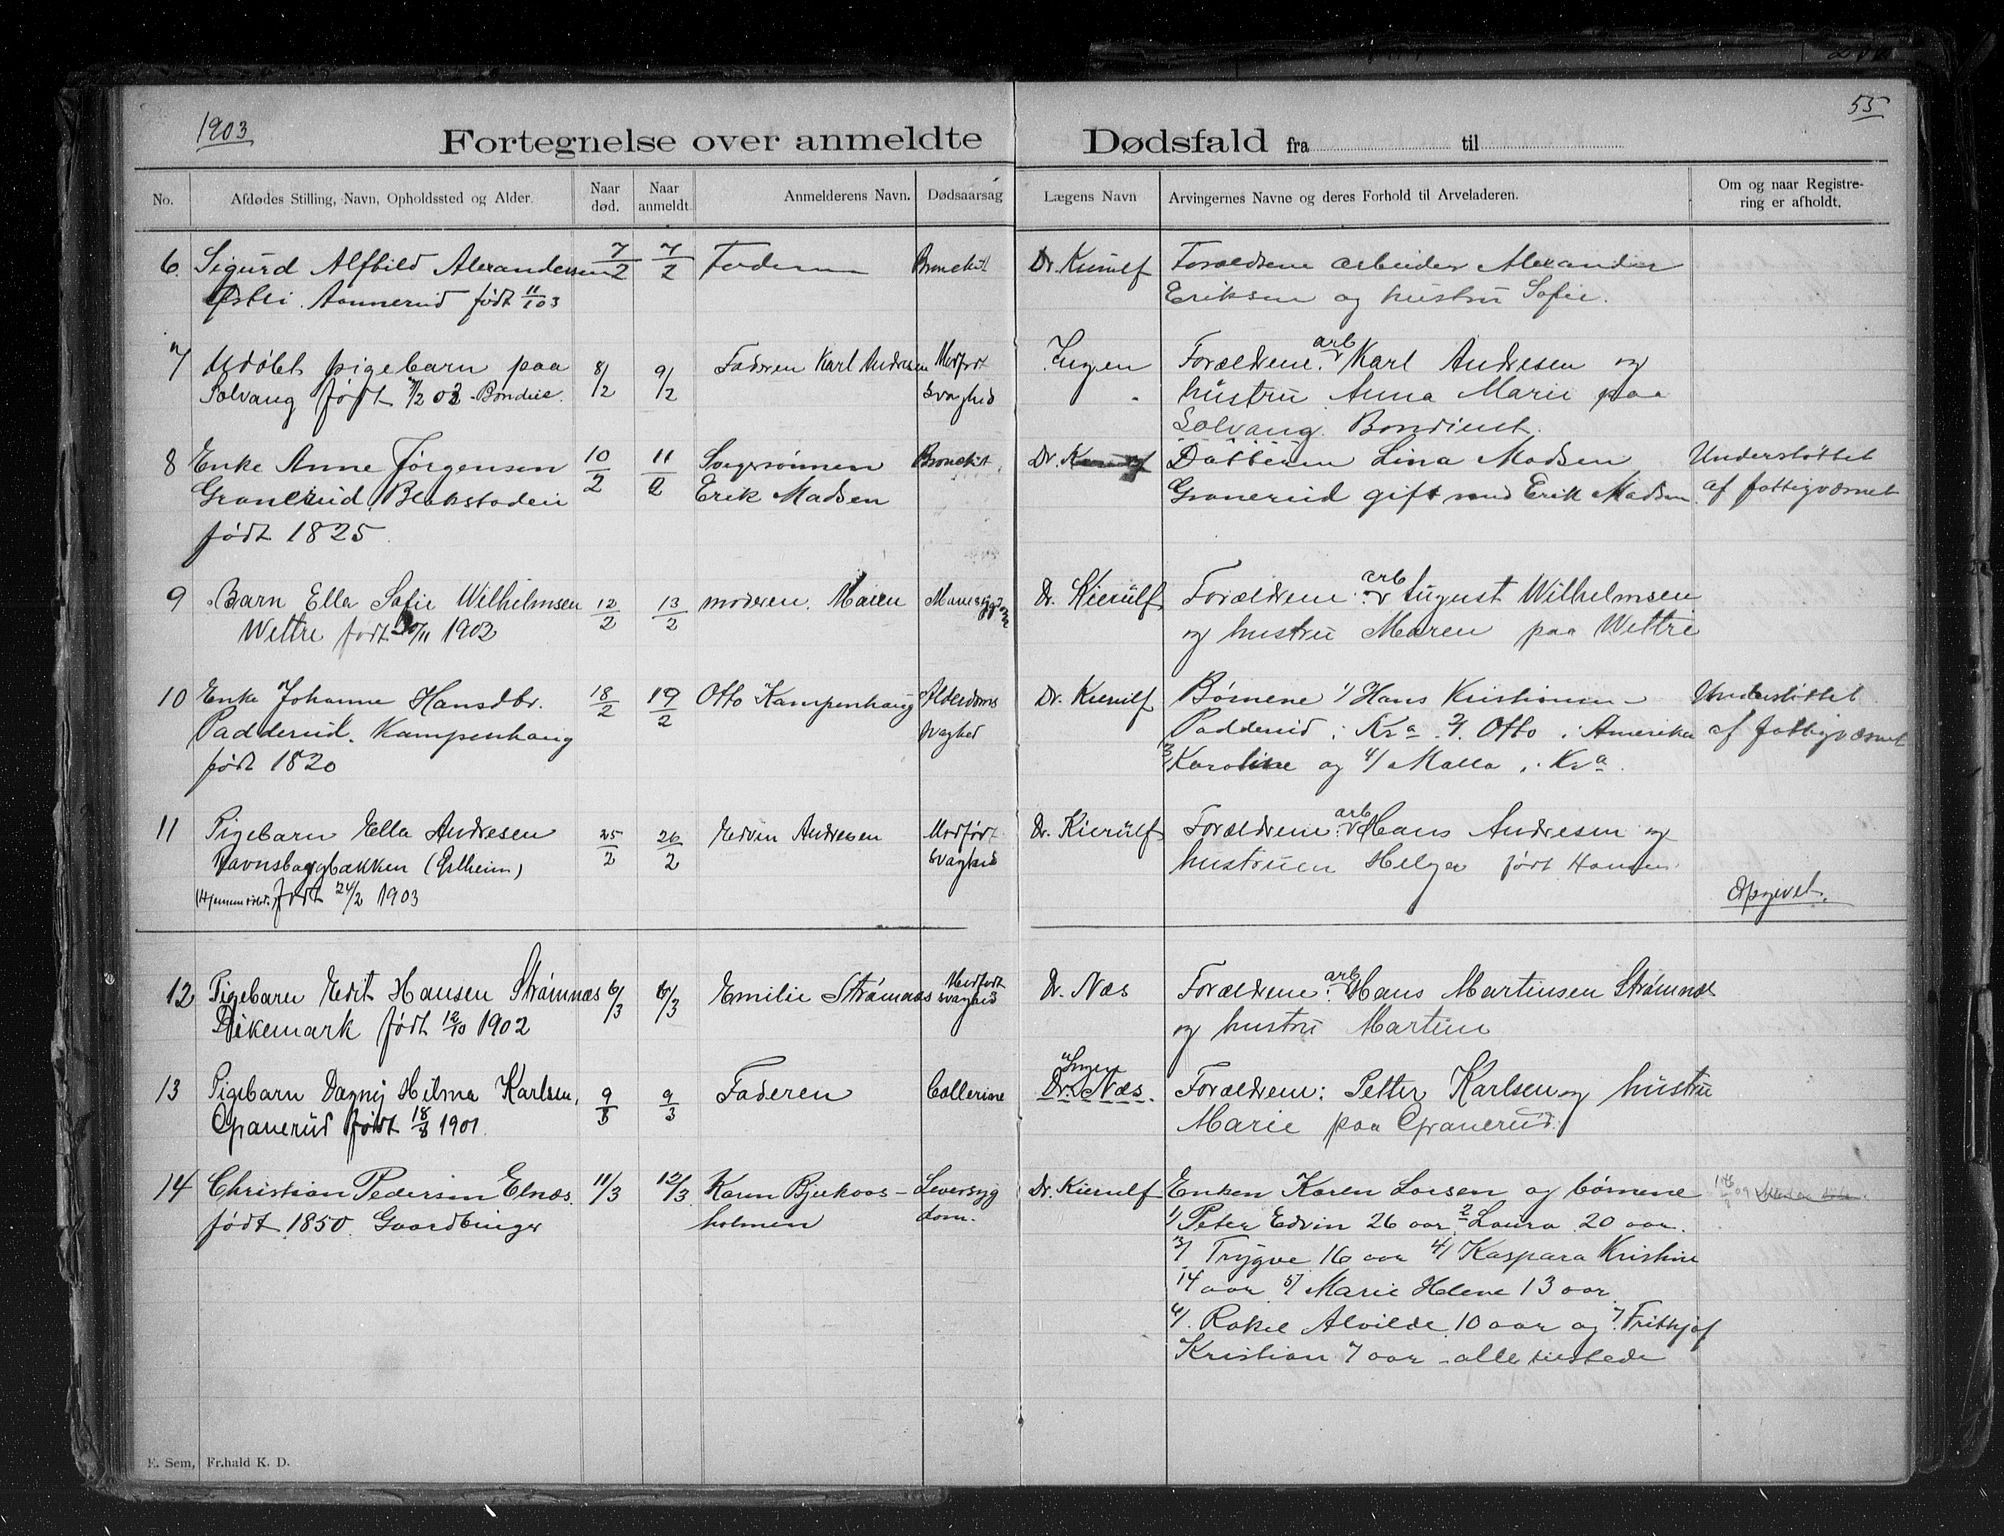 1903
55
Fortegnelse over anmeldte Dødsfald fra til
No. Afdødes Stilling, Navn, Opholdssted og Alder. Naar død. Naar anmeldt. Anmelderens Navn. Dødsaarsag Lægens Navn Arvingernes Navne og deres Forhold til Arveladeren. Om og naar Registrering er afholdt.
6. Sigurd Alfhild Alexandersen 7/2 7/2 Faderen Bronchit Dr. Kierulf Forældrene arbeider Alexander
Østli Aannerud født 11/1 03 Eriksen og hustru Sofie.
7 Udøbt pigebarn paa 8/2 9/2 Faderen Karl Andresen Medfødt Ingen Forældrene arb Karl Andresen og
Solvang født 7/2 03 Bondie. svaghed hustru Anna Marie paa
Solvang Bondiest.
8 Enke Anne Jørgensen 10/2 11/2 Svigersønnen Bronchit. Dr. Datteren Lina Madsen Understøttet
Granerud Blakstadeie Erik Madsen Granerud gift med Erik Madsen af fattigvæsnet
født 1825.
9 Barn Ella Sofie Wilhelmsen 12/2 13/2 moderen Maren Dr. Kierulf Forældrene arb August Wilhelmsen
Wettre født /11 1902 og hustru Maren paa Wettre
10 Enke Johanne Hansdtr. 18/2 19/2 Otto Kampenhaug Alderdoms Dr. Kierulf Børnene 1/ Hans Kristian Understøttet
Padderud. Kampenhaug svaghed Padderud i Kra 2/ Otto i Amerika af fattigvæsnet
født 1820 3/ Karoline og 4/ Malla i Kra.
11 Pigebarn Ella Andresen 25/2 26/2 Edvin Andresen Medfødt Dr. Kierulf Forældrene arb Hans Andresen og
Ravnsborgbakken (Eslheim) svaghed hustruen Helga født Hansen
(Hjemmedøbt.) født 24/2 1903 Opgivet.
12 Pigebarn Edit Hansen Strømnæs 6/3 6/3 Emilie Strømnæs Medfødt svaghed Dr. Næs Forældrene arb Hans Martinsen Strømnæs
Dikemark født 12/10 1902 og hustru Martine
Ingen
13 Pigebarn Dagny Hilma Karlsen, 9/3 9/3 Faderen Collerine Dr. Næs. Forældrene: Petter Karlsen og hustru
Granerud født 18/8 1901. Marie paa Granerud.
14 Christian Pedersen Elnæs. 11/3 12/3 Karen Bjerkaas- Leversyg Dr. Kierulf Enken Karen Larsen og børnene
født 1850. Gaardbruger holmen dom. 1/ Peter Edvin 26 aar 2/ Laura 20 aar.
3/ Trygve 16 aar 4/ Kaspara Kristine
14 aar 5/ Marie Helene 13 aar
6/ Rakel Alvilde 10 aar og 7/ Frithjof
Kristian 7 aar - alle tilstede
E. Sem, Fr.hald K. D.